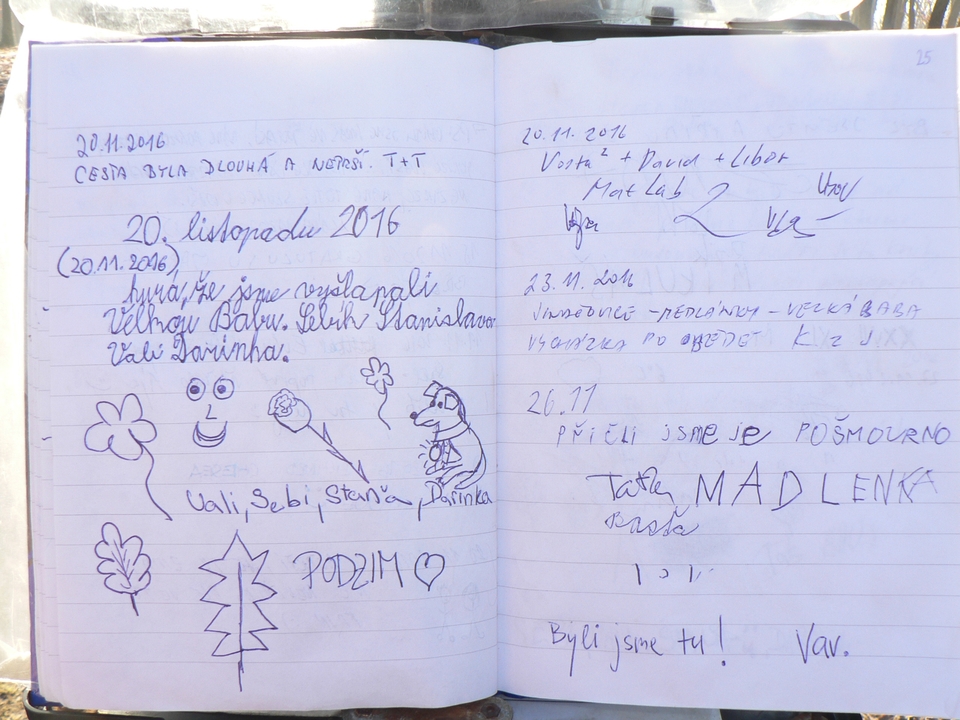 20.11.2016
CESTA BYLA DLOUHÁ A NEPRŠÍ. T+T
20. listopadu 2016
(20.11.2016),
hurá, že jsme vyšlapali
Velkou Babu. Sebík Stanislava
Vali Darinka.
Vali, Sebi, Staňa, Darinka
PODZIM
25
20.11.2016
+ David + Libor
MatLab
23.11.2016
- MEDLÁNKY - VELKÁ BABA
VYCHÁZKA PO OBĚDĚ K z J
26.11
PŘIČLI JSME JE POŠMOURNO
MADLENKA
Byli jsme tu! Vav.